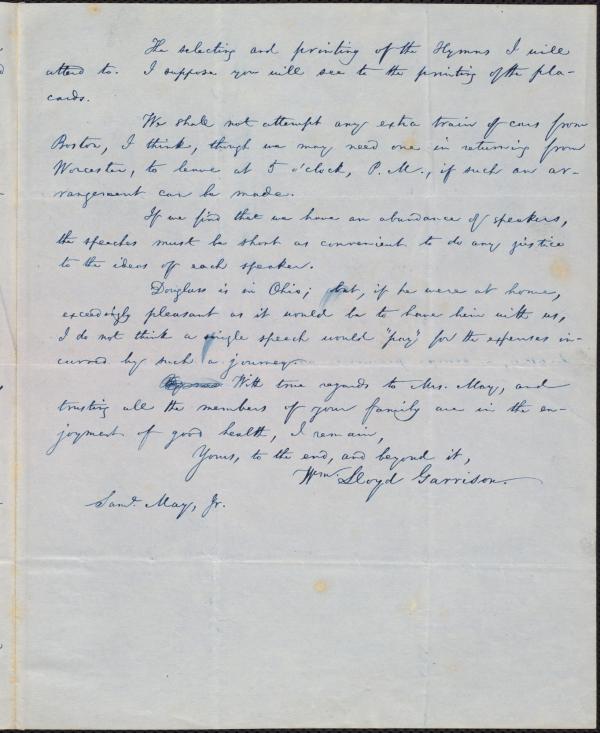 The selecting and printing of the Hymns I will
attend to. I suppose you will see to the printing of the pla-
cards.
We shall not attempt any extra train of cars from
Boston, I think, though we may need one in returning from
Worcester, to leave at 5 o'clock, P. M., if such an ar-
rangement can be made.
If we find that we have an abundance of speakers,
the speeches must be short as convenient to do any justice
to the ideas of each speaker.
Douglass is in Ohio; but, if he were at home,
exceedingly pleasant as it would be to have him with us,
I do not think a single speech would "pay" for the expenses in-
curred by such a journey.
With true regards to Mrs. May, and
trusting all the members of your family are in the en-
joyment of good health, I remain,
Yours, to the end, and beyond it,
Wm. Lloyd Garrison.
Saml. May, Jr.